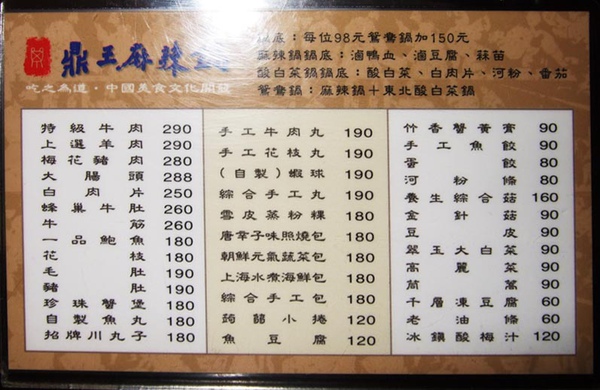 鼎王麻辣鍋
吃之為道・中國美食文化開發
鍋底：每位98元鴛鴦鍋加150元
麻辣鍋鍋底：滷鴨血、滷豆腐、蒜苗
酸白菜鍋鍋底：酸白菜、白肉片、河粉、番茄
鴛鴦鍋：麻辣鍋＋東北酸白菜鍋
特級牛肉 290
上選羊肉 290
梅花豬肉 280
大腸頭 288
白肉片 250
蜂巢牛肚 260
牛筋 260
一品鮑魚 180
花枝 180
毛肚 190
豬肚 190
珍珠蟹堡 180
自製魚丸 180
招牌川丸子 180
手工牛肉丸 190
手工花枝丸 190
(自製)蝦球 190
綜合手工丸 190
雪皮蒸粉粿 180
唐辛子味照燒包 180
朝鮮元氣蔬菜包 180
上海水煮海鮮包 180
綜合手工包 180
蒟蒻小捲 120
魚豆腐 120
竹香蟹黃膏 90
手工魚餃 90
蛋餃 80
河粉條 80
養生綜合菇 160
金針菇 90
豆皮 90
翠玉大白菜 90
高麗菜 90
茼蒿 90
千層凍豆腐 60
老油條 60
冰鎮酸梅汁 120